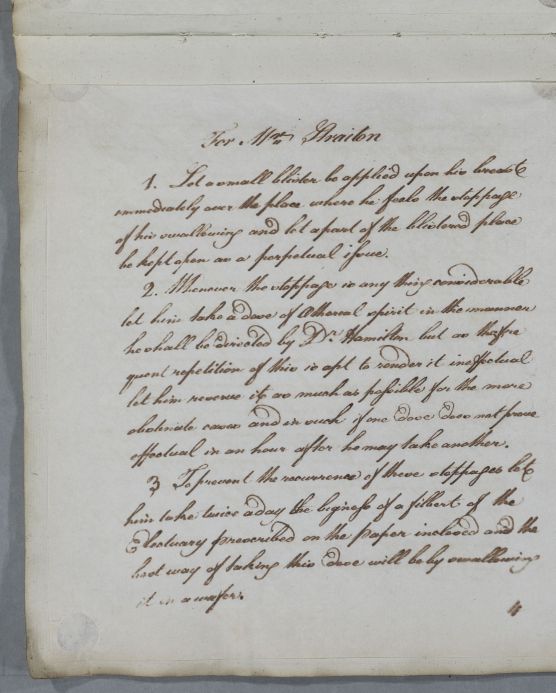 For Mr. Straiton
1. Let a small blister be applied upon his breast
immediately over the place where he feels the stoppage
of his swallowing and let a part of the blistered place
be kept open as a perpetual issue.
2. Whenever the stoppage is any thing considerable
let him take a dose of Æthereal spirit in the manner
he shall be directed by Dr. Hamilton but as the fre
quent repetition of this is apt to render it ineffectual
let him reserve it as much as possible for the more
obstinate cases and in such if one dose does not prove
effectual in an hour after he may take another.
3 To prevent the recurrence of these stoppages let
him take twice a day the bigness of a filbert of the
Electuary prescribed on the Paper inclosed and the
best way of taking this dose will be by swallowing
it in a wafer.
4